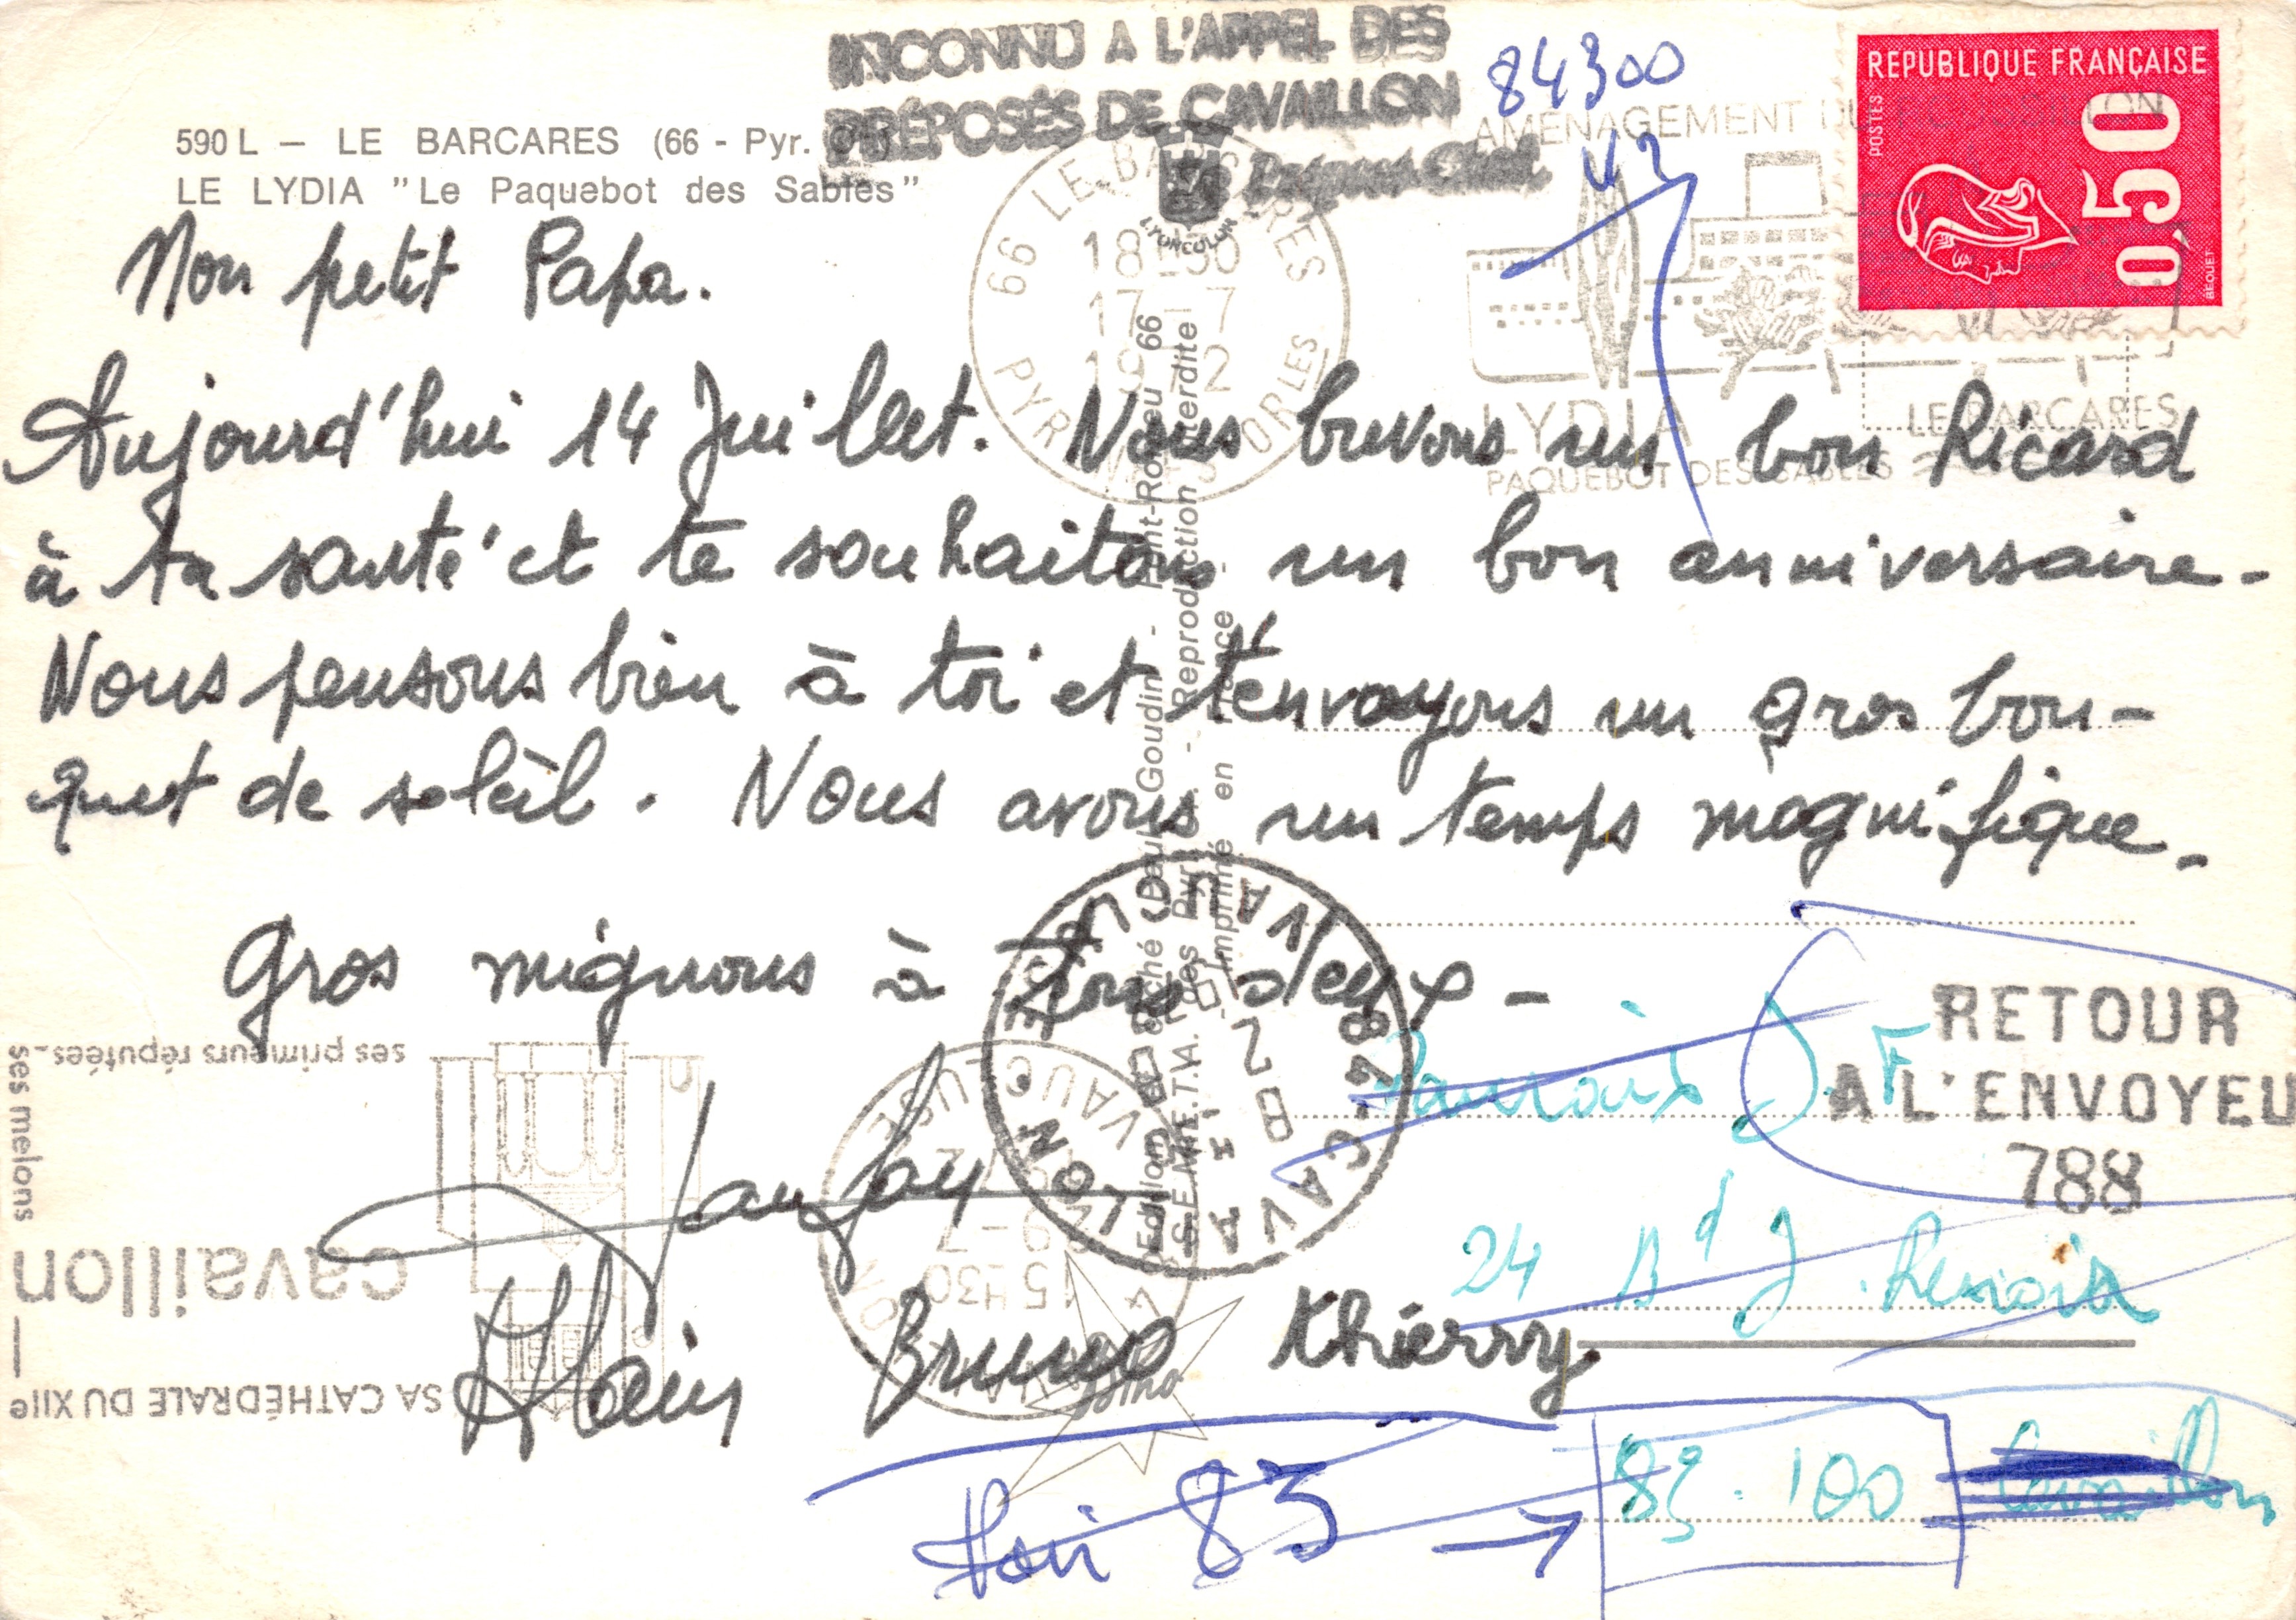 INCONNU A L'APPEL DES
PRÉPOSÉS DE CAVAILLON
84300
REPUBLIQUE FRANÇAISE
POSTES
0,50
BEQUET
590 L – LE BARCARES (66 - Pyr. Or.)
LE LYDIA "Le Paquebot des Sables"
LYONCOLOR
66 LE BARCARES
18H30
17-7
1972
PYRENEES ORLES
AMENAGEMENT DU
LYDIA
PAQUEBOT DES SABLES
LE BARCARES
Mon petit Papa.
Aujourd'hui 14 Juillet. Nous buvons un bon Ricard
à ta santé et te souhaitons un bon anniversaire.
Nous pensons bien à toi et t'envoyons un gros bou-
quet de soleil. Nous avons un temps magnifique.
Gros mignons à tous deux -
Alain Bruno Thierry
RETOUR
A L'ENVOYEU
788
J. F
24 Bd J. Renoir
83.100 Cavaillon
Voir 83
84 - CAVAILLON
VAUCLUSE
15H30
ses primeurs réputées-
ses melons
cavaillon
SA CATHÉDRALE DU XIIe
Reproduction interdite
Imprimé en